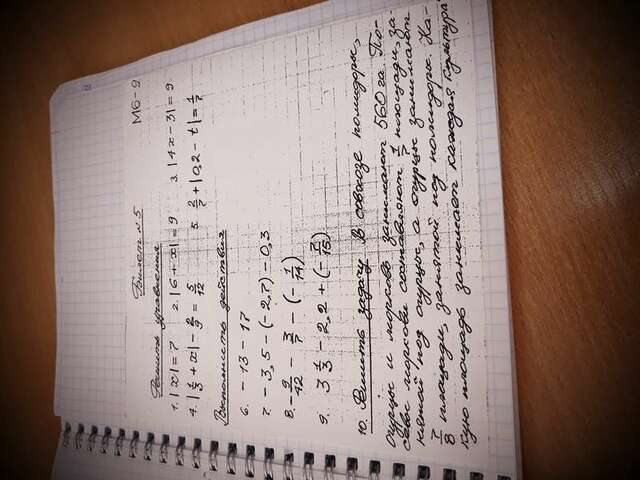 Билет № 5 М6-9
Решить уравнения
1. |x| = 7 2. |6 + x| = 9 3. |4x - 3| = 9
4. |1/3 + x| - 2/9 = 5/12 5. 2/7 + |0,2 - t| = 1/7
Выполнить действия
6. - 13 - 17
7. - 3,5 - (- 2,7) - 0,3
8. - 9/42 - 3/7 - (- 1/14)
9. 3 1/3 - 2,2 + (- 7/15)
10. Решить задачу В совхозе помидоры,
огурцы и морковь занимают 560 га. По-
севы моркови составляют 1/7 площади, за-
нятой под огурцы, а огурцы занимают
7/8 площади, занятой под помидоры. Ка-
кую площадь занимает каждая культура